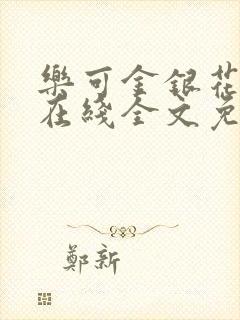 樂可金銀花
在綫全文免
鄭新